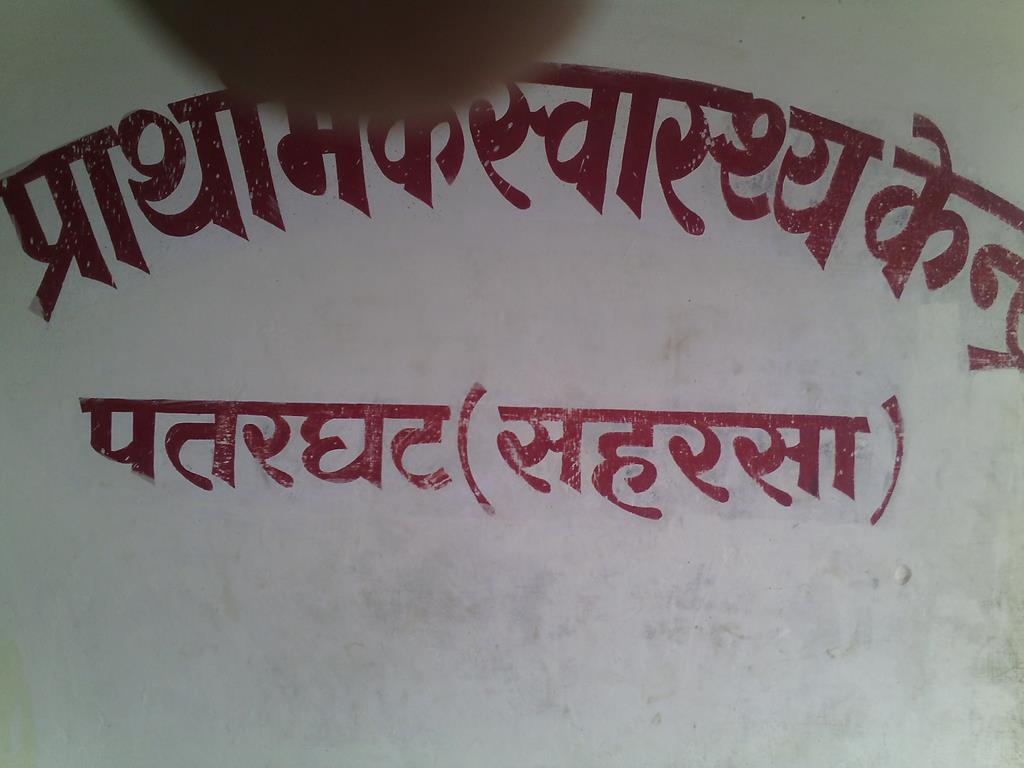 प्राथमिक स्वास्थ्य केन्द्र
पतरघट (सहरसा)